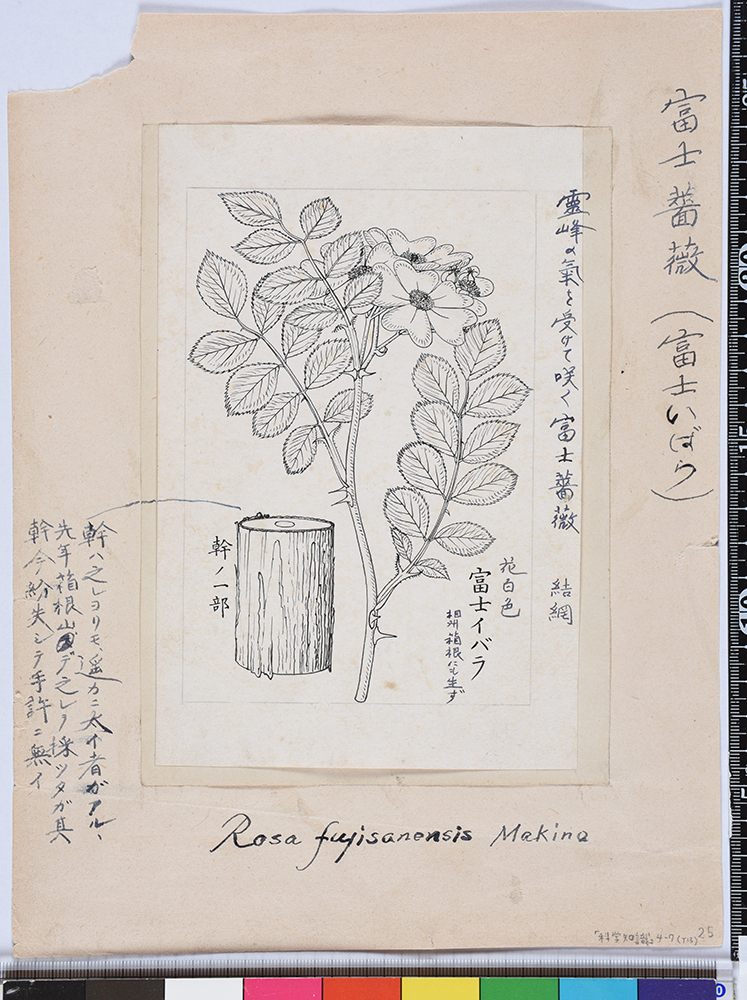 富士薔薇（富士いばら）
靈峰の氣を受けて咲く富士薔薇　結網
花白色
富士イバラ
相州箱根にも生ず
幹ノ一部
幹ハ之レヨリモ、遥カニ太イ者ガアル、
先年箱根山デ之レヲ採ツタガ其
幹今紛失シテ手許ニ無イ
Rosa fujisanensis Makino
『科学知識』4-7 (T13)
25